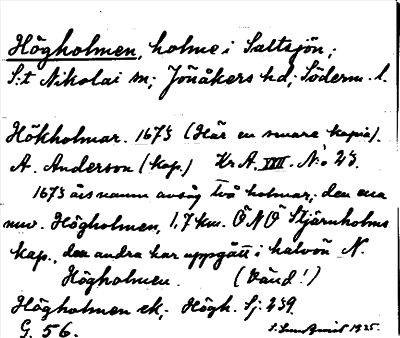 Högholmen, holme i Saltsjön;
S:t Nikolai sn; Jönåkers hd; Söderm. l.
Hökholmar. 1673 (Här en senare kopia).
A. Anderson (kap.) Kr A. XVII. N:o 23.
1673 års namn avsåg två holmar; den ena
nuv. Högholmen, 1,7 km. ÖNÖ Stjärnholms
kap., den andra har uppgått i halvön N.
Högholmen. (Vänd!)
Högholmen ek; Högh. Sj. 239.
G. 56. 1925.